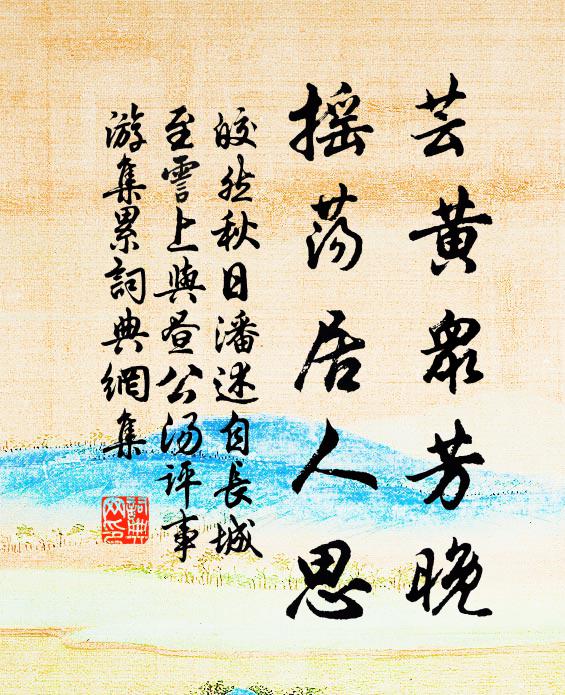 芸黄眾芳晚
摇荡居人思
皎然秋日潘述自長城
至霅上與晝公湯評事
游集累詞典網集
詞典